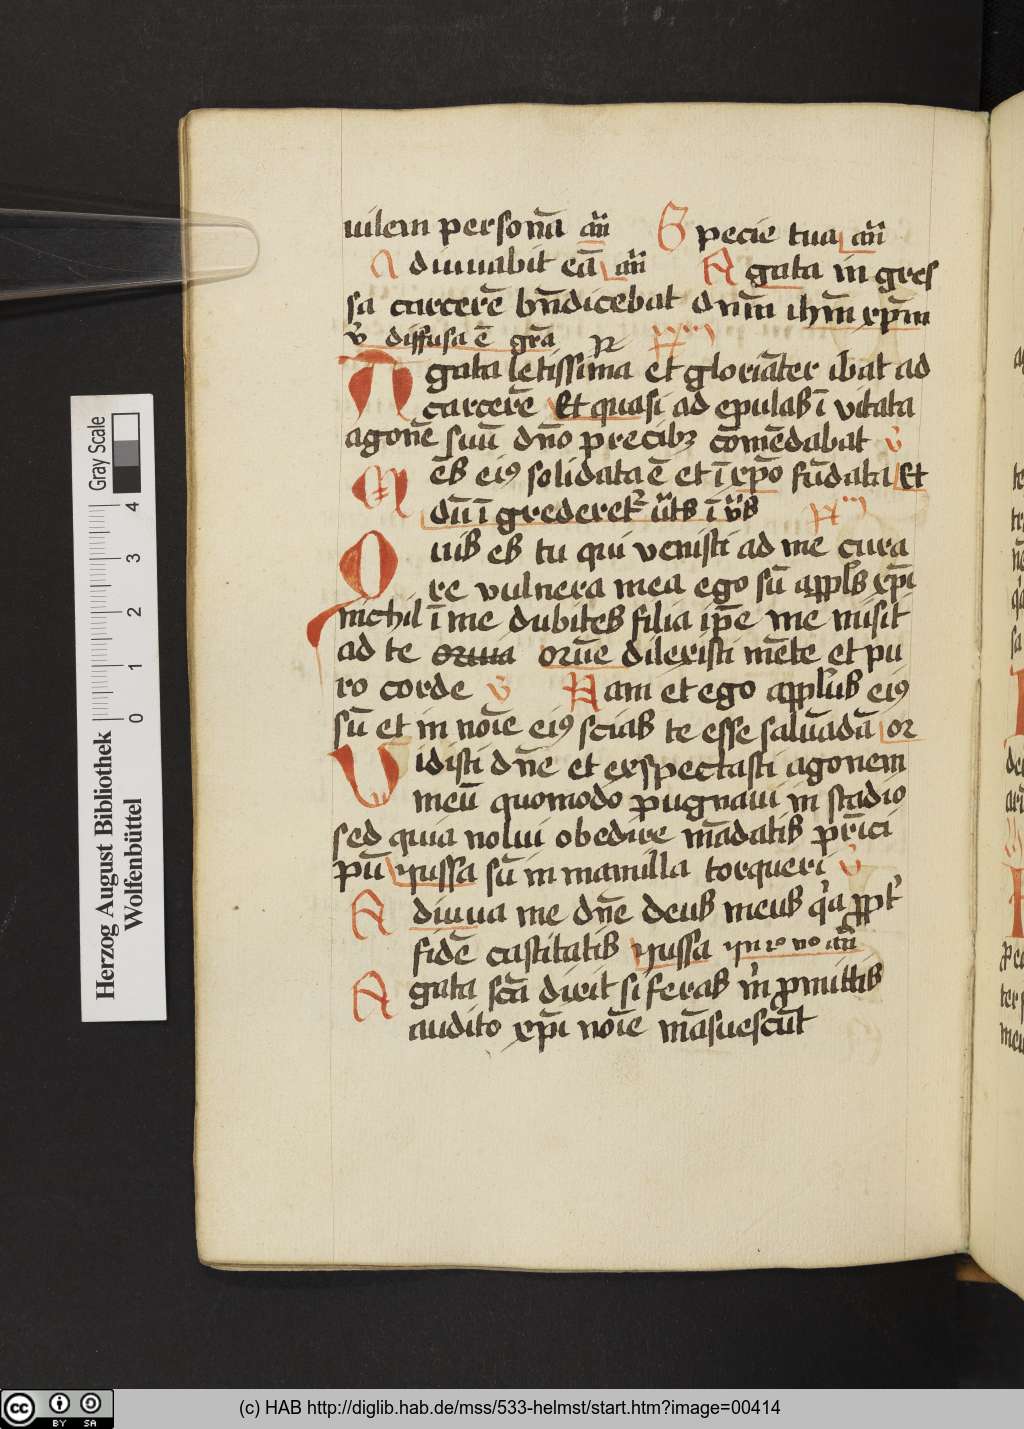 uilem persona᷈ an̄ Specie tua an̄
Adiuuabit eā an̄ Agata in gres
sa carcerē bn̄dicebat dn̄m ihm̄ xp̄m
v̊ diffusa ē gr̄a R
Agata letissima et glorian̄ter ibat ad
carcerē Et quasi ad epulas ī vitata
agonē suū dn̄o precibꝫ cōmēdabat v̊
Mēs eiꝰ solidata ē et ī xp̄o fūdata Et
dū ī grederetᷣ
Quis es tu qui venisti ad me cura
re vulnera mea ego sū appl̄s xp̄i
nichil ī me dubites filia ip̄e me misit
ad te orūe dilexisti mēte et pu
ro corde v̊ Nam et ego appl̄us eiꝰ
sū et in noīe eiꝰ scias te esse saluādā or
Uidisti dn̄e et exspectasti agonem
meū quomodo pugnaui in stadio
sed quia nolui obedire mādatis prīci
pū yussa sū in mamilla torqueri v̊
Adiuua me dn̄e deus meus
fidē castitatis yussa an̄
Agata sc̄a dixit si feras m̄ ꝓmittis
audito xp̄i noīe māsuescūt
Herzog August Bibliothek
Wolfenbüttel
0 1 2 3 4
Gray Scale
cc BY SA
(c) HAB http://diglib.hab.de/mss/533-helmst/start.htm?image=00414